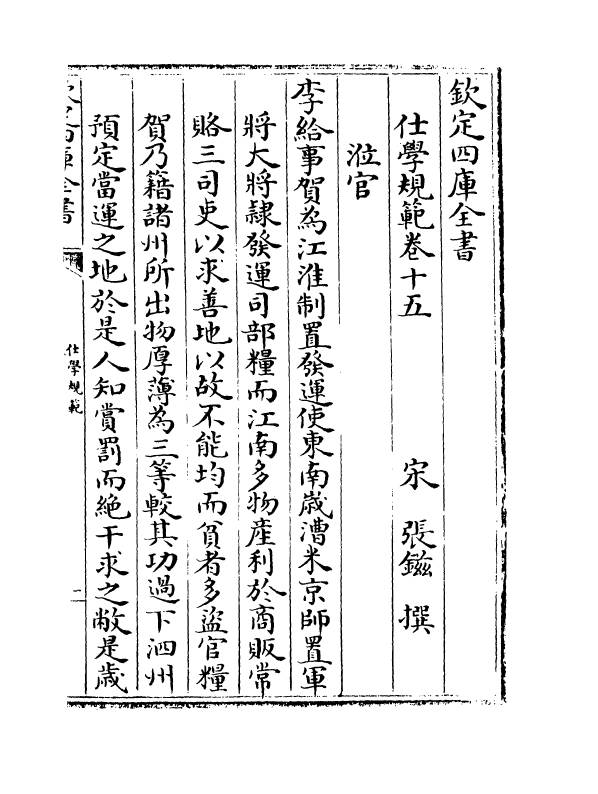 欽定四庫全書
仕學規範卷十五
宋 張鎡 撰
涖官
李給事賀為江淮制置發運使東南歲漕米京師置軍
將大將隸發運司部糧而江南多物産利於商販常
賂三司吏以求善地以故不能均而貧者多盜官糧
賀乃籍諸州所出物厚薄為三等較其功過下泗州
預定當運之地於是人知賞罰而絶干求之敝是歲
欽定四庫全書
仕學規範
一